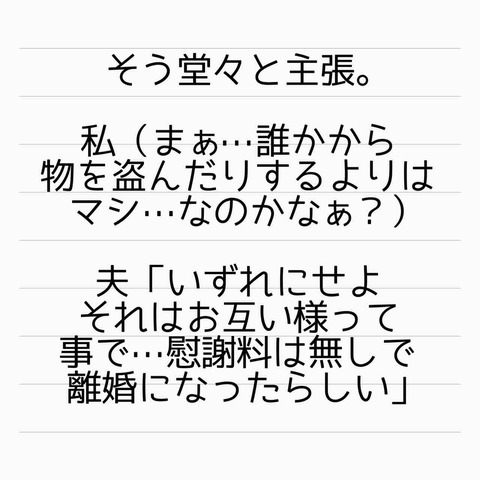 そう堂々と主張。
私（まぁ…誰かから
物を盗んだりするよりは
マシ…なのかなぁ？）
夫「いずれにせよ
それはお互い様って
事で…慰謝料は無しで
離婚になったらしい」